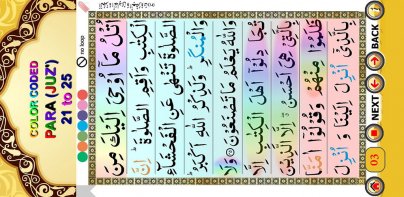 COLOR CODED
PARA (JUZ')
21 to 25
no loop
اُتْلُ مَاۤ اُوْحِیَ اِلَیْكَ مِنَ
الْكِتٰبِ وَاَقِمِ الصَّلٰوةَ ؕ اِنَّ
الصَّلٰوةَ تَنْهٰی عَنِ الْفَحْشَآءِ
وَالْمُنْكَرِ ؕ وَلَذِكْرُ اللّٰهِ اَكْبَرُ ؕ
وَاللّٰهُ یَعْلَمُ مَا تَصْنَعُوْنَ وَلَا
تُجَادِلُوْۤا اَهْلَ الْكِتٰبِ اِلَّا
بِالَّتِیْ هِیَ اَحْسَنُ ۖ اِلَّا الَّذِیْنَ
ظَلَمُوْا مِنْهُمْ وَقُوْلُوْۤا اٰمَنَّا
بِالَّذِیْۤ اُنْزِلَ اِلَیْنَا وَاُنْزِلَ
03
NEXT
BACK